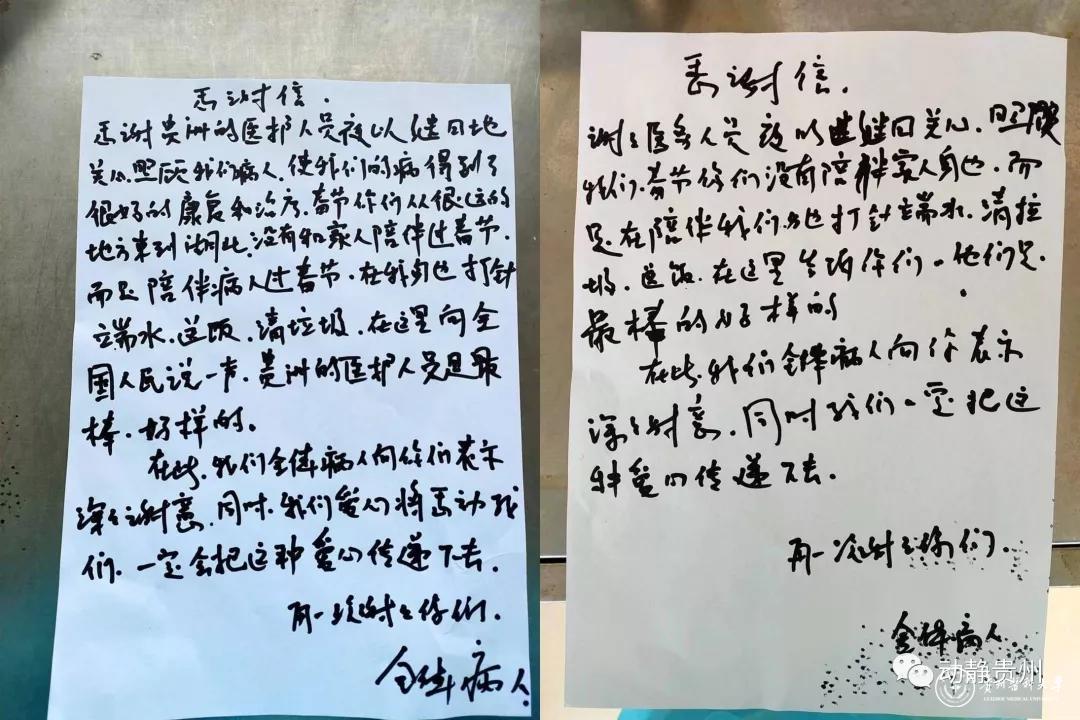 感谢信.
感谢贵洲的医护人员夜以继日地
关心照顾我们病人,使我们的病得到了
很好的康复和治疗,春节你们从很远的
地方来到湖北,没有和家人陪伴过春节,
而是陪伴病人过春节,在我身边打针
端水、送饭、清垃圾,在这里向全
国人民说一声,贵洲的医护人员是最
棒、好样的。
在此,我们全体病人向你们表示
深深谢意,同时,我们爱心将感动我
们,一定会把这种爱心传递下去.
再一次谢谢你们.
全体病人
感谢信.
谢谢医务人员夜以继日关心,照顾
我们,春节你们没有陪伴家人身边,而
是在陪伴我们身边打针端水、清垃
圾、送饭,在这里告诉你们,他们是
最棒的好样的
在此,我们全体病人向你表示
深深谢意,同时我们一定把这
种爱心传递下去.
再一次谢谢你们.
全体病人
动静贵州
贵州医科大学
GUIZHOU MEDICAL UNIVERSITY